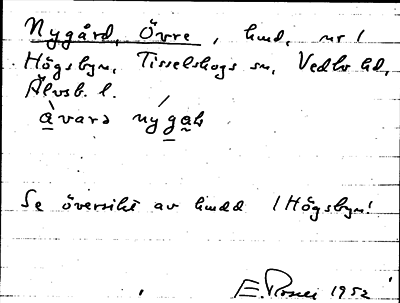 Nygård, Övre, hmd, nr 1
Högsbyn, Tisselskogs sn, Vedbo hd,
Älvsb. l.
àvara nýgaḷ
Se översikt av hmdd i Högsbyn!
E. Rosell 1952